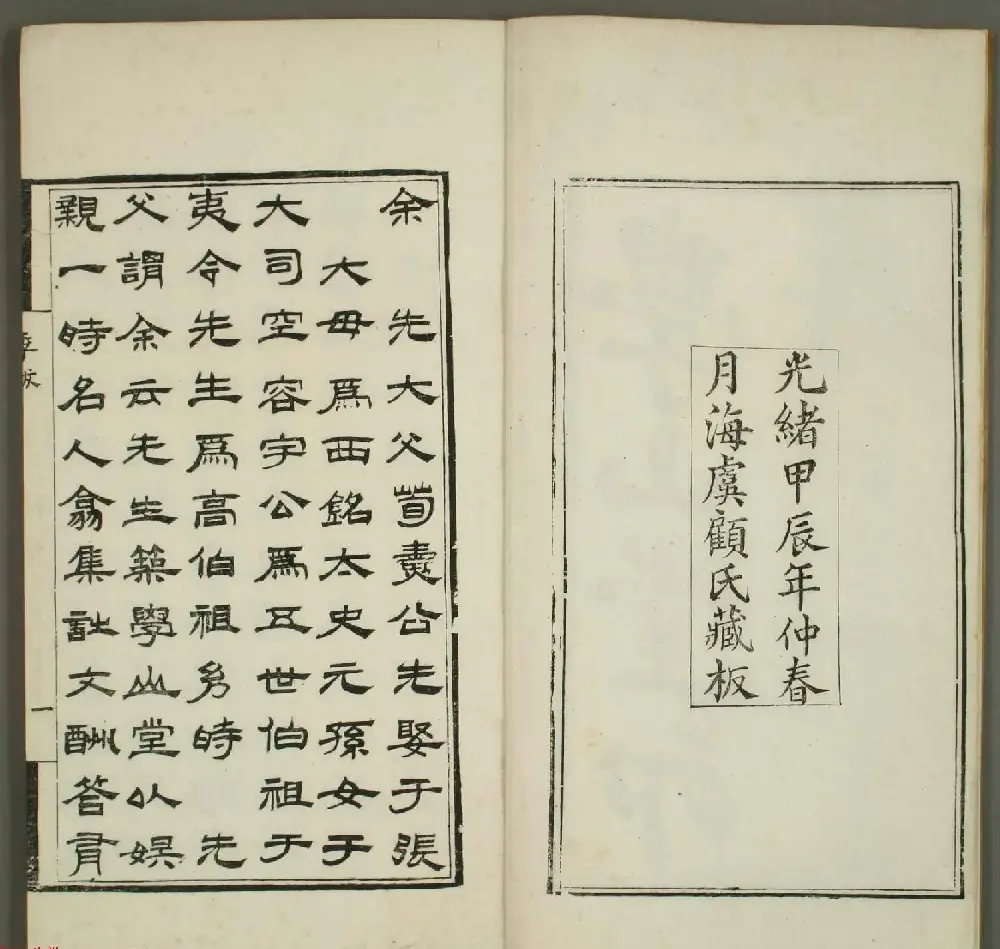 光緒甲辰年仲春
月海虞顧氏藏板
余 先大父荀公先娶于張
大母爲西銘太史元孫女于
大司空容宇公爲五世伯祖于
夷令先生爲高伯祖幼時 先
父謂余云先生築學山堂以娛
親一時名人翕集詩文酬答
一